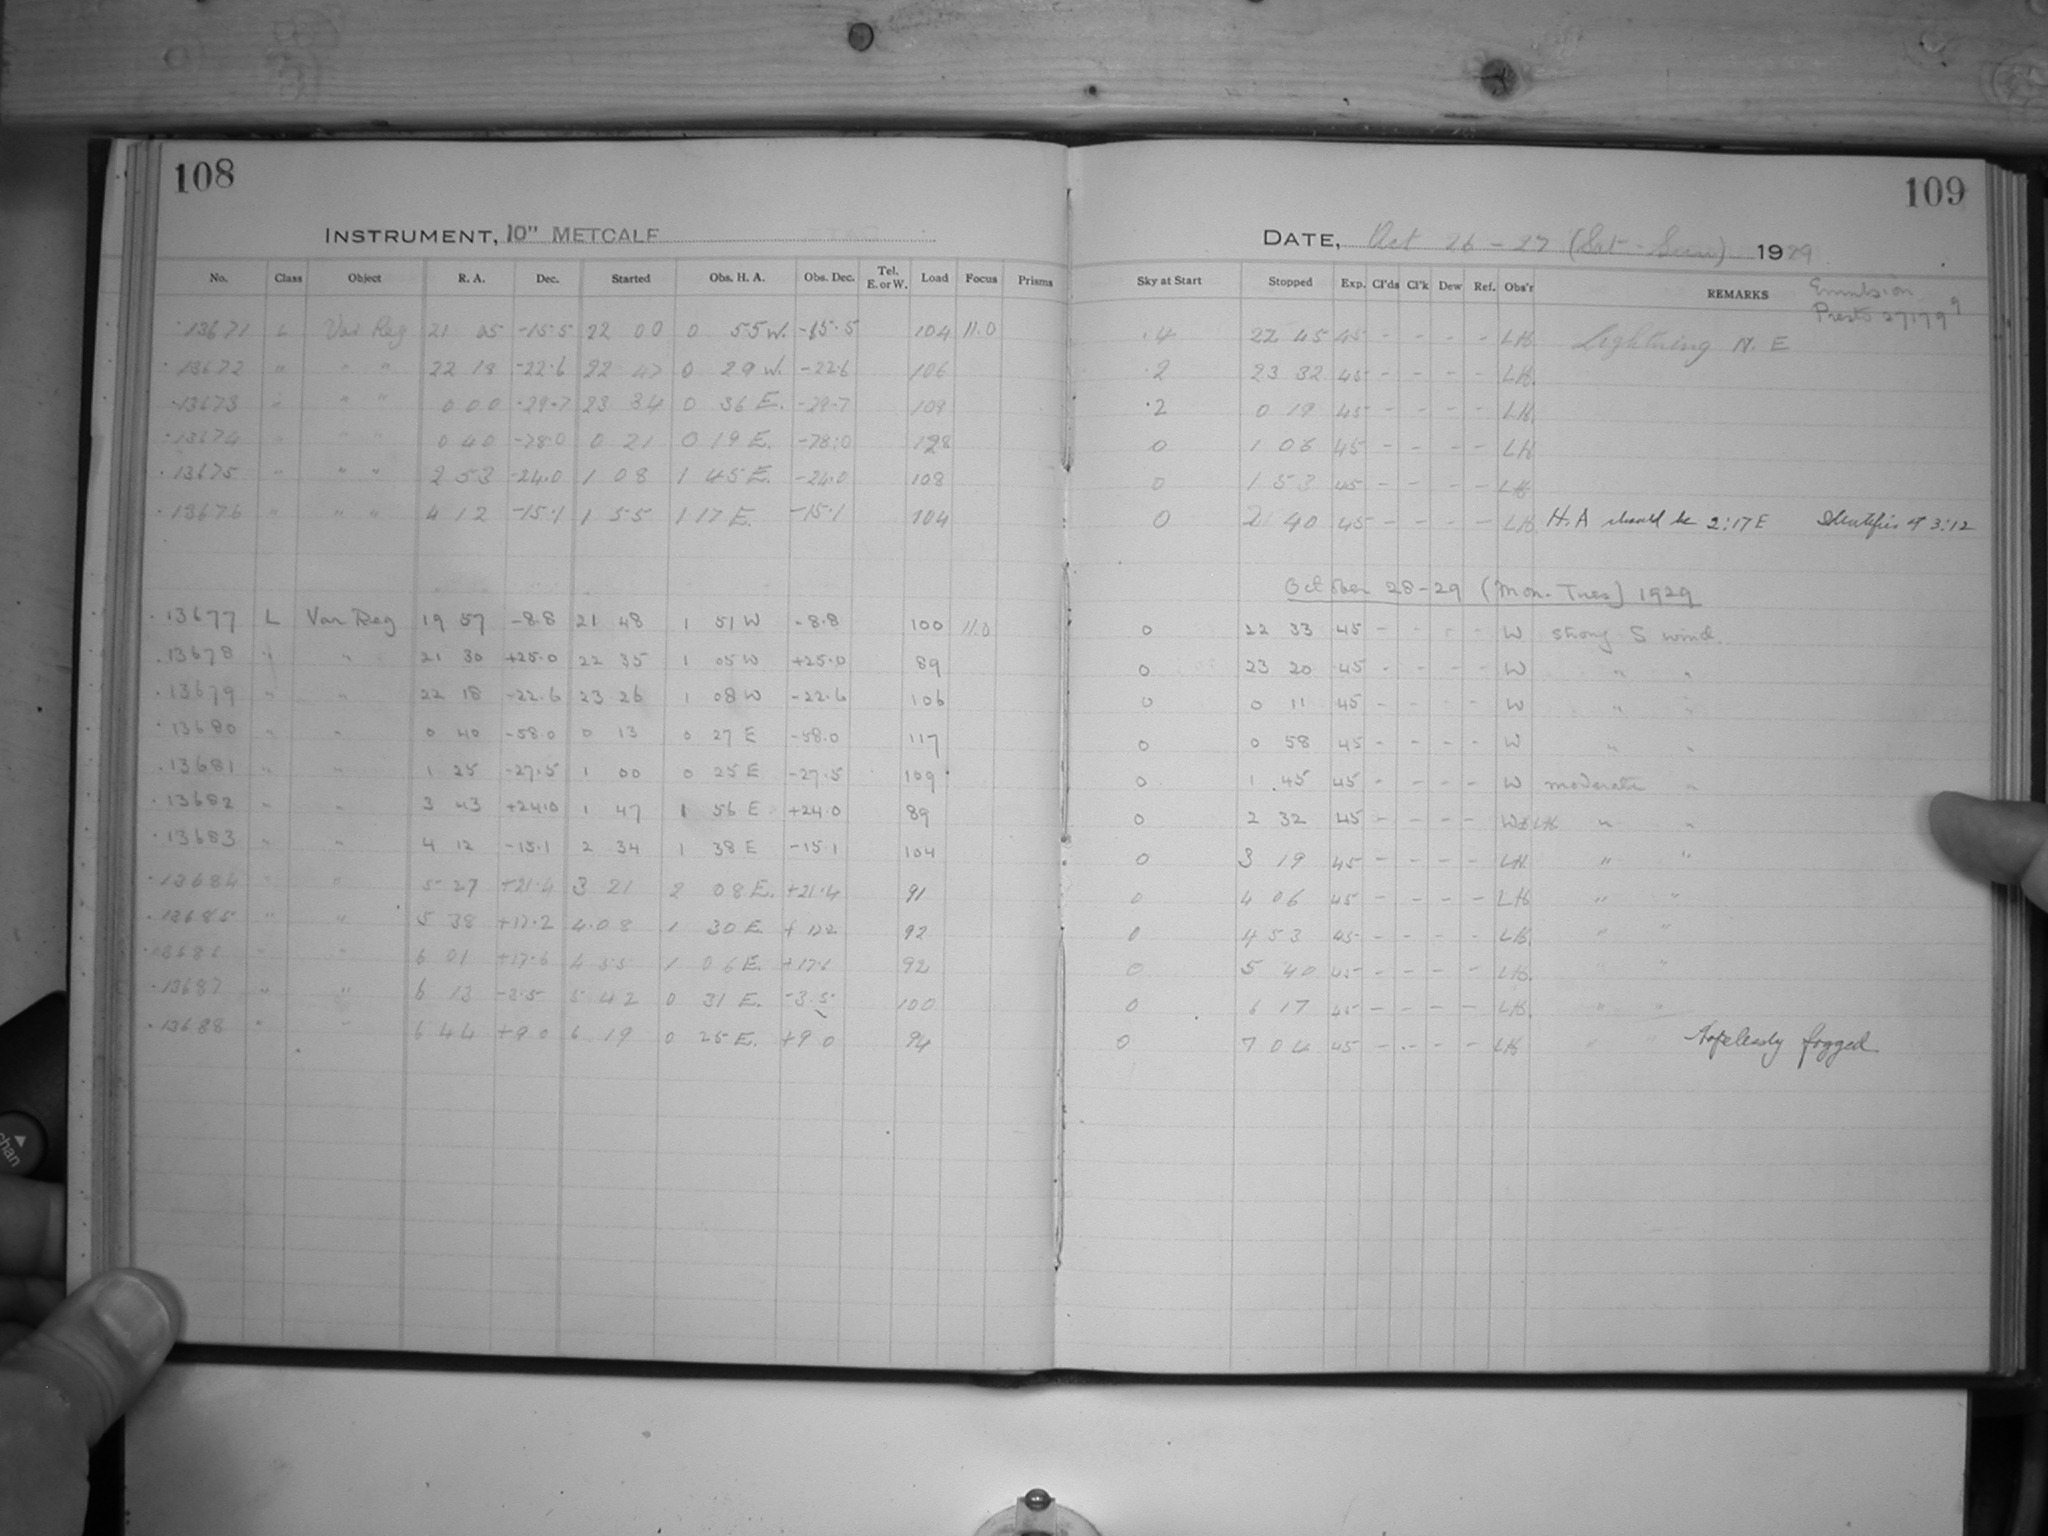 108
109
INSTRUMENT, 10" METCALF
DATE, Oct 26 - 27 (Sat - Sun) 1929
No. Class Object R. A. Dec. Started Obs. H. A. Obs. Dec. Tel. E. or W. Load Focus Prisms Sky at Start Stopped Exp. Cl'ds Cl'k Dew Ref. Obs'r REMARKS Emulsion
Presto 27179
13671 L Var Reg 21 05 -15.5 22 00 0 55 W. -15.5 104 11.0 .4 22 45 45 - - - - LH Lightning N. E
13672 " " " 22 18 -22.6 22 47 0 29 W. -22.6 106 .2 23 32 45 - - - - LH.
13673 " " " 0 00 -29.7 23 34 0 36 E. -29.7 109 .2 0 19 45 - - - - LH.
13674 " " " 0 40 -78.0 0 21 0 19 E. -78.0 128 0 1 06 45 - - - - LH
13675 " " " 2 53 -24.0 1 08 1 45 E. -24.0 108 0 1 53 45 - - - - LH
13676 " " " 4 12 -15.1 1 55 1 17 E. -15.1 104 0 2 40 45 - - - - LH H.A should be 2:17 E 3:12
October 28-29 (Mon. Tues) 1929
13677 L Var Reg 19 57 -8.8 21 48 1 51 W -8.8 100 11.0 0 22 33 45 - - - - W strong S wind.
13678 " " 21 30 +25.0 22 35 1 05 W +25.0 89 0 23 20 45 - - - - W " "
13679 " " 22 18 -22.6 23 26 1 08 W -22.6 106 0 0 11 45 - - - - W " "
13680 " " 0 40 -58.0 0 13 0 27 E -58.0 117 0 0 58 45 - - - - W " "
13681 " " 1 25 -27.5 1 00 0 25 E -27.5 109 0 1 45 45 - - - - W moderate "
13682 " " 3 43 +24.0 1 47 1 56 E +24.0 89 0 2 32 45 - - - - W & LH " "
13683 " " 4 12 -15.1 2 34 1 38 E -15.1 104 0 3 19 45 - - - - LH. " "
13684 " " 5 27 +21.4 3 21 2 08 E. +21.4 91 0 4 06 45 - - - - LH " "
13685 " " 5 38 +12.2 4 08 1 30 E. + 12.2 92 0 4 53 45 - - - - LH. " "
13686 " " 6 01 +17.6 4 55 1 06 E. +17.6 92 0 5 40 45 - - - - LH. " "
13687 " " 6 13 -3.5 5 42 0 31 E. -3.5 100 0 6 17 45 - - - - LH. " "
13688 " " 6 44 +9 0 6 19 0 25 E. +9 0 94 0 7 04 45 - - - - LH " " Hopelessly fogged